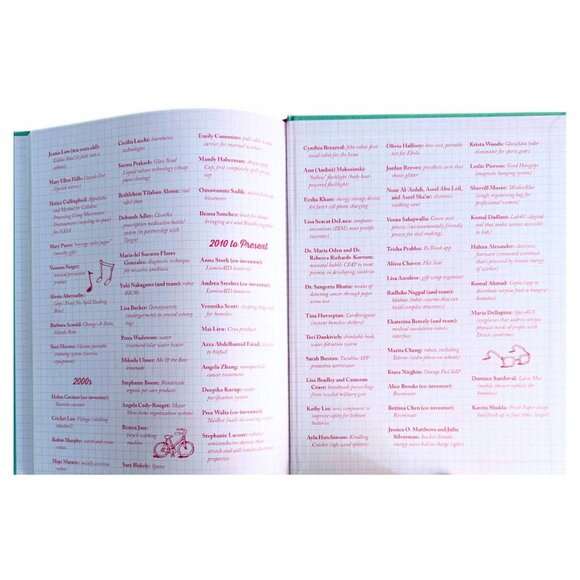 Jeanie Low (ten years old):
Kiddie Stool (it folds into a
Mary Ellen Hills: Dazzle Dot
Spanish mirror)
Hatice Cullingford: Apparatus
and Method for Cellulose
Processing Using Microwave
Mary Pance: "orange mint paper"
(novelty gift)
Vanessa Singer:
musical percussion
Alexia Abernathy:
Oops! Proof No-Spill Feeding
Bowl
Barbara Arnold: Charge-A-Plate
Suzi Havens: Havens portable
training system (exercise
equipment)
2000s
Helen Greiner (co-inventor):
Roomba vacuum
Cricket Lee: Fitlogic (clothing
standard)
Robin Murphy: search-and-rescue
robots
Maja Mataric: socially assistive
robots
Cecilia Lacchi:
technologies
Seema Prakash: Glass Bead
Liquid culture technology (cheap
plant cloning)
Bethlehem Tilahun Alemu: soul
rebel
Deborah Adler: ClearRx
prescription medication bottle/
system (in partnership with
Target)
Maria del Socorro Flores
Gonzales: diagnostic technique
for invasive amebiasis
Yuki Nakagawa (and team): robot
RI-MAN
Lisa Becker: Ostomysecrets
(undergarments to conceal ostomy
bag)
Petra Wadstrom: water
treatment/solar water heater
Mikaila Ulmer: Me & the Bees
lemonade
Stephanie Boom: Wonderside
organic pet-care products
Angela Cody-Rouget: Major
Mom home organization systems
Kenya Joe:
tricycle washing
machine
Sara Blakely: Spanx
Emily Cummins: pull-able water
carrier for manual workers
Mandy Haberman: Anywayup
Cup, first completely spill-proof
cup
Omowunmi Sadik:
Ileana Sanchez: book for blind
bringing art and Braille together
2010 to Present
Anna Stork (co-inventor):
LuminAID lanterns
Andrea Sreshta (co-inventor):
LuminAID lanterns
Veronika Scott: sleeping-bag coat
for homeless
Mai Lieu: Crea products
Azza Abdelhamid Faiad: plastic
to biofuel
Angela Zhang: nanoparticle
cancer treatment
Deepika Kurup: water
purification system
Pree Walia (co-inventor):
Nailbot (nail-decorating robot)
Stephanie Lacour: rubbery
semiconductor devices that
stretch and still retain electronic
properties
Cynthia Breazeal: Jibo robot: first
social robot for the home
Ann (Andini) Makosinski:
"hollow" flashlight (body heat-
powered flashlight)
Eesha Khare: energy storage device
for faster cell phone charging
Lisa Seacat DeLuca: computer
inventions (IBM's most prolific
inventor)
Dr. Maria Oden and Dr.
Rebecca Richards-Kortum:
neonatal bubble CPAP to treat
preemies in developing countries
Dr. Sangeeta Bhatia: means of
detecting cancer through paper
urine test
Tina Hovsepian: Cardborigami
(instant homeless shelters)
Teri Dankovich: drinkable book,
water filtration system
Sarah Buxton: Tivablue SPF
protective activewear
Lisa Bradley and Cameron
Cruse: handmade purses/bags
from recycled military gear
Kathy Loe: new component to
improve safety for lithium
batteries
Ayla Hutchinson: Kindling
Cracker (safe wood splitter)
Olivia Hallisey: low-cost, portable
test for Ebola
Jordan Reeves: prosthetic arm that
shoots glitter
Nour Al-Ardah, Aseel Abu Leil,
and Aseel Sha'ar: electronic
walking cane
Verma Sahajwalla: Green steel
process (environmentally friendly
process for steel making)
Trisha Prabhu: ReThink app
Alissa Chavez: Hot Seat
Lisa Ascolese: gift wrap organizer
Radhika Nagpal (and team):
Kilobots (robot swarms that can
build complex structures)
Ekaterina Bereziy (and team):
medical exoskeleton robotic
interface
Marita Cheng: robots, including
Teleroo (video phone on wheels)
Kiara Nirghin: Orange Peel SAP
Alice Brooks (co-inventor):
Roominate
Bettina Chen (co-inventor):
Roominate
Jessica O. Matthews and Julia
Silverman: Soccket (kinetic
energy soccer ball to charge lights)
Krista Woods: GloveStix (odor
eliminator for sports gear)
Leslie Pierson: Good Hangups
(magnetic hanging system)
Sherrill Mosee: MinkeeBlue
(simple organizing bag for
professional women)
Komal Dadlani: Lab4U (digital
tool that makes science accessible
to kids)
Halima Alexander: electronic
forearm (connected workspace
that's powered by kinetic energy
of workers)
Komal Ahmad: Copia (app to
distribute surplus food to hungry/
homeless)
Maria Dellapina: Specs4US
(eyeglasses that address unique
physical needs of people with
Down syndrome)
Doniece Sandoval: Lava Mae
(mobile showers/toilets for
homeless)
Kavita Shukla: Fresh Paper (keeps
food fresh up to four times longer)